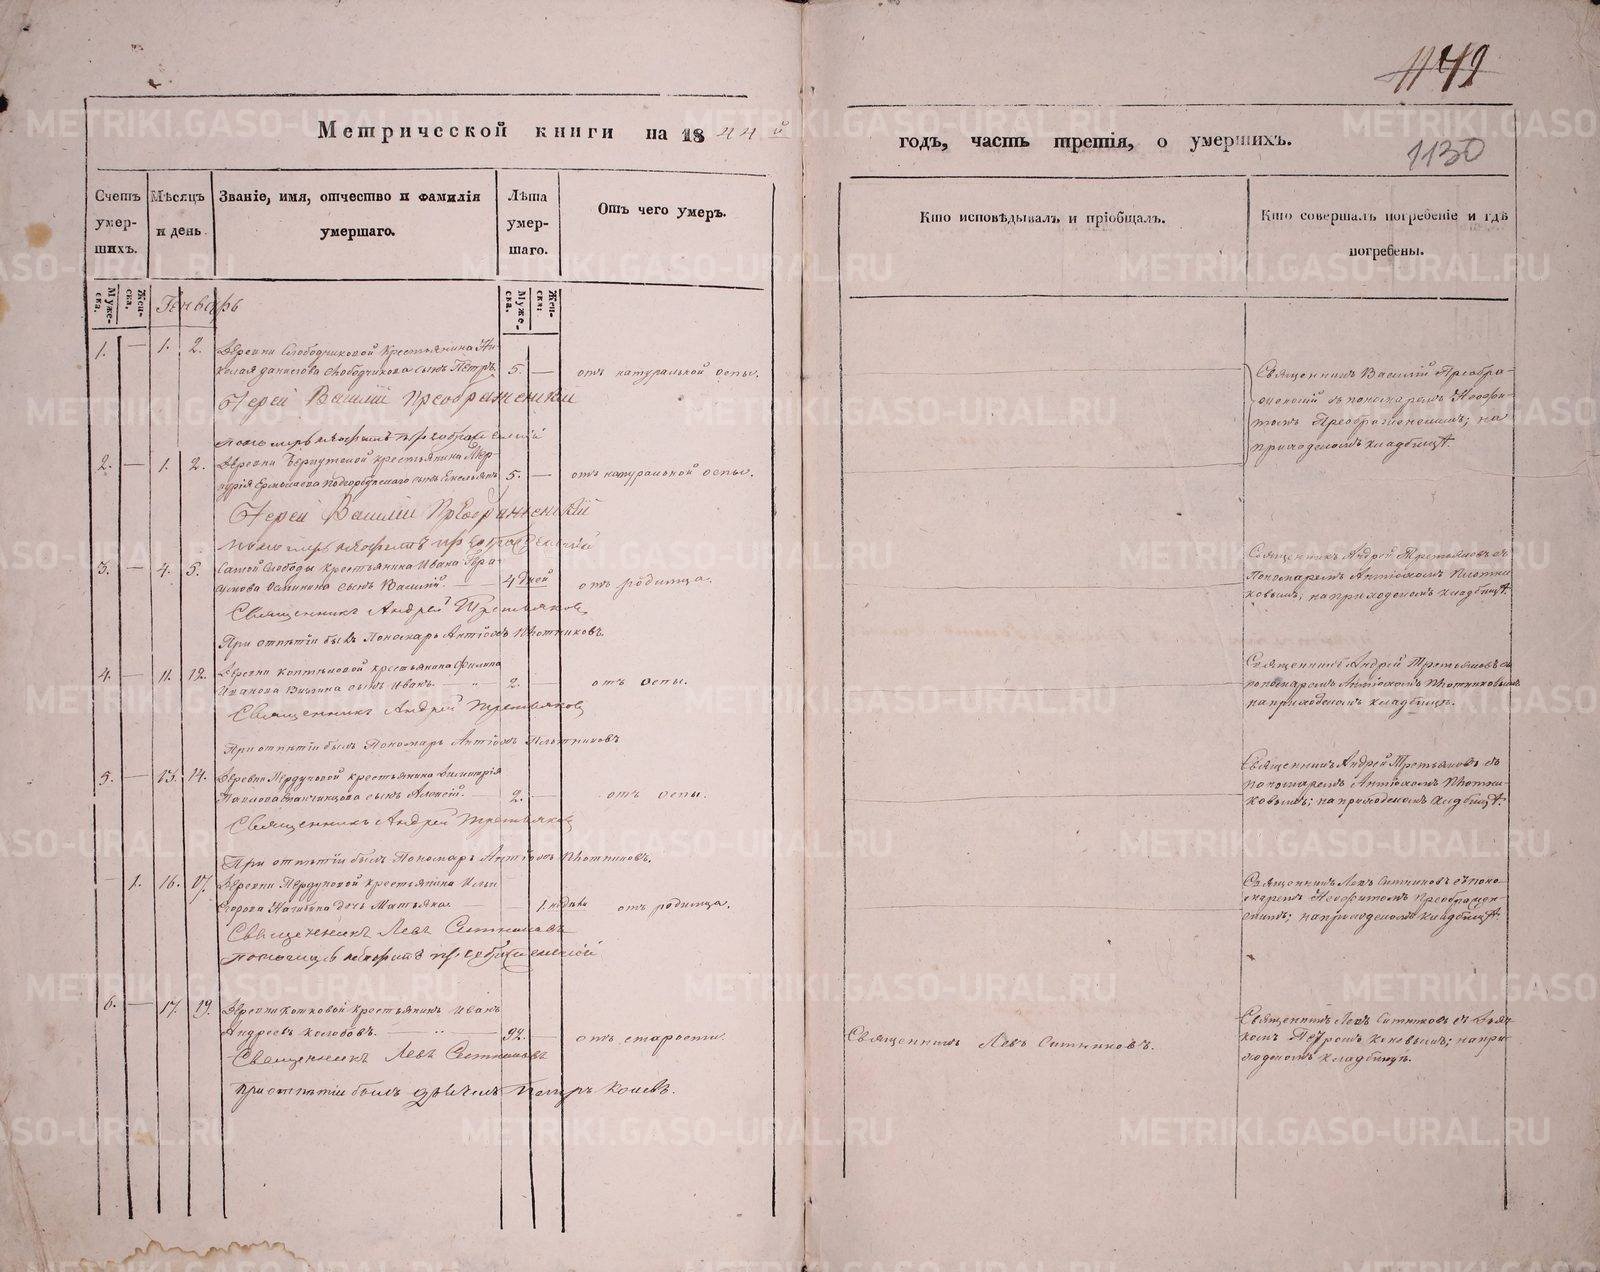 1149
Метрической книги на 1844й
годъ, часть третія, о умершихъ.
1130
Счетъ умер-шихъ.
Мѣсяцъ и день.
Званіе, имя, отчество и фамилія
умершаго.
Лѣта умер-шаго.
Отъ чего умеръ.
Кто исповѣдывалъ и пріобщалъ.
Кто совершалъ погребеніе и гдѣ
погребены.
Муже-ска.
Жен-ска.
Генварь
Муже-ска.
Жен-ска.
1. — 1. 2. Деревни Слободчиковой крестьянина Ни-
колая Данилова Слободчикова сынъ Петръ. 5. — отъ натуральной оспы.
Іерей Василій Преображенскій
пономарь Неофитъ Преображенскій
Священникъ Василій Преобра-
женскій съ пономаремъ Неофи-
томъ Преображенскимъ; на
приходскомъ кладбищѣ.
2. — 1. 2. Деревни крестьянина Мер-
курія сынъ Емельянъ 5. — отъ натуральной оспы.
Іерей Василій Преображенскій
пономарь Неофитъ Преображенскій
3. — 4. 5. Самой Слободы крестьянина Ивана
сынъ Василій. — 4 дней отъ родимца.
Священникъ Андрей Третьяковъ
При отпѣтіи былъ Пономарь Антіохъ Плотниковъ.
Священникъ Андрей Третьяковъ съ
Пономаремъ Антіохомъ Плотни-
ковымъ; на приходскомъ кладбищѣ.
4. — 11. 12. Деревни крестьянина Филипа
Иванова сынъ Иванъ. — 2. — отъ оспы.
Священникъ Андрей Третьяковъ
При отпѣтіи былъ Пономарь Антіохъ Плотниковъ
Священникъ Андрей Третьяковъ съ
пономаремъ Антіохомъ Плотниковымъ
на приходскомъ кладбищѣ.
5. — 13. 14. Деревни крестьянина Димитрія
Павлова сынъ Алексій. — 2. — отъ оспы.
Священникъ Андрей Третьяковъ
При отпѣтіи былъ Пономарь Антіохъ Плотниковъ.
Священникъ Андрей Третьяковъ съ
пономаремъ Антіохомъ Плотни-
ковымъ; на приходскомъ кладбищѣ.
— 1. 16. 17. Деревни крестьянина Ильи
Егорова дочь Матрона. — 1. недѣли отъ родимца.
Священникъ Левъ Ситниковъ
пономарь Неофитъ Преображенскій
Священникъ Левъ Ситниковъ съ поно-
маремъ Неофитомъ Преображен-
скимъ; на приходскомъ кладбищѣ.
6. — 17. 19. Деревни крестьянинъ Иванъ
Андреевъ Колобовъ. — 92. — отъ старости.
Священникъ Левъ Ситниковъ
При отпѣтіи былъ дьячекъ Петръ Коневъ.
Священникъ Левъ Ситниковъ.
Священникъ Левъ Ситниковъ съ Дьяч-
комъ Петромъ Коневымъ; на при-
ходскомъ кладбищѣ.
METRIKI.GASO-URAL.RU